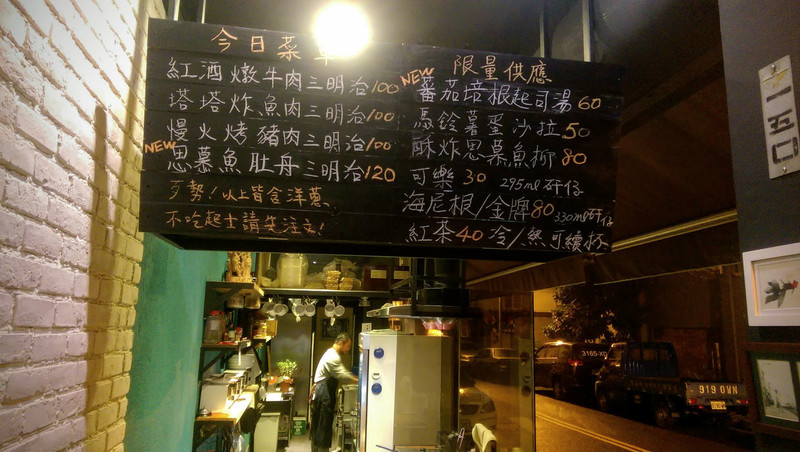 今日菜
紅酒燉牛肉三明治100
塔塔炸魚肉三明治100
慢火烤豬肉三明治100
NEW
思慕魚肚丹三明治120
歹勢！以上皆含洋蔥、
不吃起士請先注文！
限量供應
NEW
蕃茄培根起司湯60
馬鈴薯蛋沙拉50
酥炸思慕魚柳80
可樂30 295ml矸仔
海尼根/金牌80 330ml矸仔
紅茶40冷/熱可續杯
一50
3165-XD
919 OVN